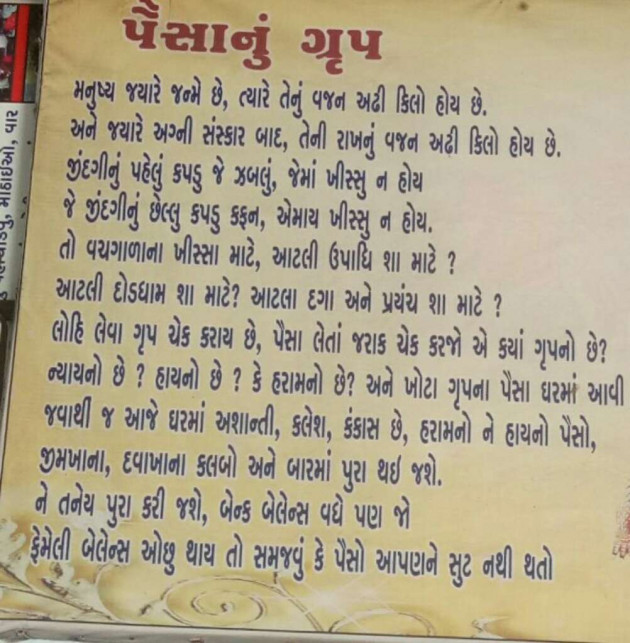 પૈસાનું ગ્રૃપ
મનુષ્ય જયારે જન્મે છે, ત્યારે તેનું વજન અઢી કિલો હોય છે.
અને જયારે અગ્ની સંસ્કાર બાદ, તેની રાખનું વજન અઢી કિલો હોય છે.
જીંદગીનું પહેલું કપડુ જે ઝબલું, જેમાં ખીસ્સુ ન હોય
જે જીંદગીનું છેલ્લુ કપડુ કફન, એમાય ખીસ્સુ ન હોય.
તો વચગાળાના ખીસ્સા માટે, આટલી ઉપાધિ શા માટે ?
આટલી દોડધામ શા માટે? આટલા દગા અને પ્રયંચ શા માટે ?
લોહિ લેવા ગૃપ ચેક કરાય છે, પૈસા લેતાં જરાક ચેક કરજો એ કયાં ગૃપનો છે?
ન્યાયનો છે ? હાયનો છે ? કે હરામનો છે? અને ખોટા ગૃપના પૈસા ઘરમાં આવી
જવાથી જ આજે ઘરમાં અશાન્તી, કલેશ, કંકાસ છે, હરામનો ને હાયનો પૈસો,
જીમખાના, દવાખાના કલબો અને બારમાં પુરા થઇ જશે.
ને તનેય પુરા કરી જશે, બેન્ક બેલેન્સ વધે પણ જો
ફેમેલી બેલેન્સ ઓછુ થાય તો સમજવું કે પૈસો આપણને સુટ નથી થતો
મીઠાઇઓ, વાર